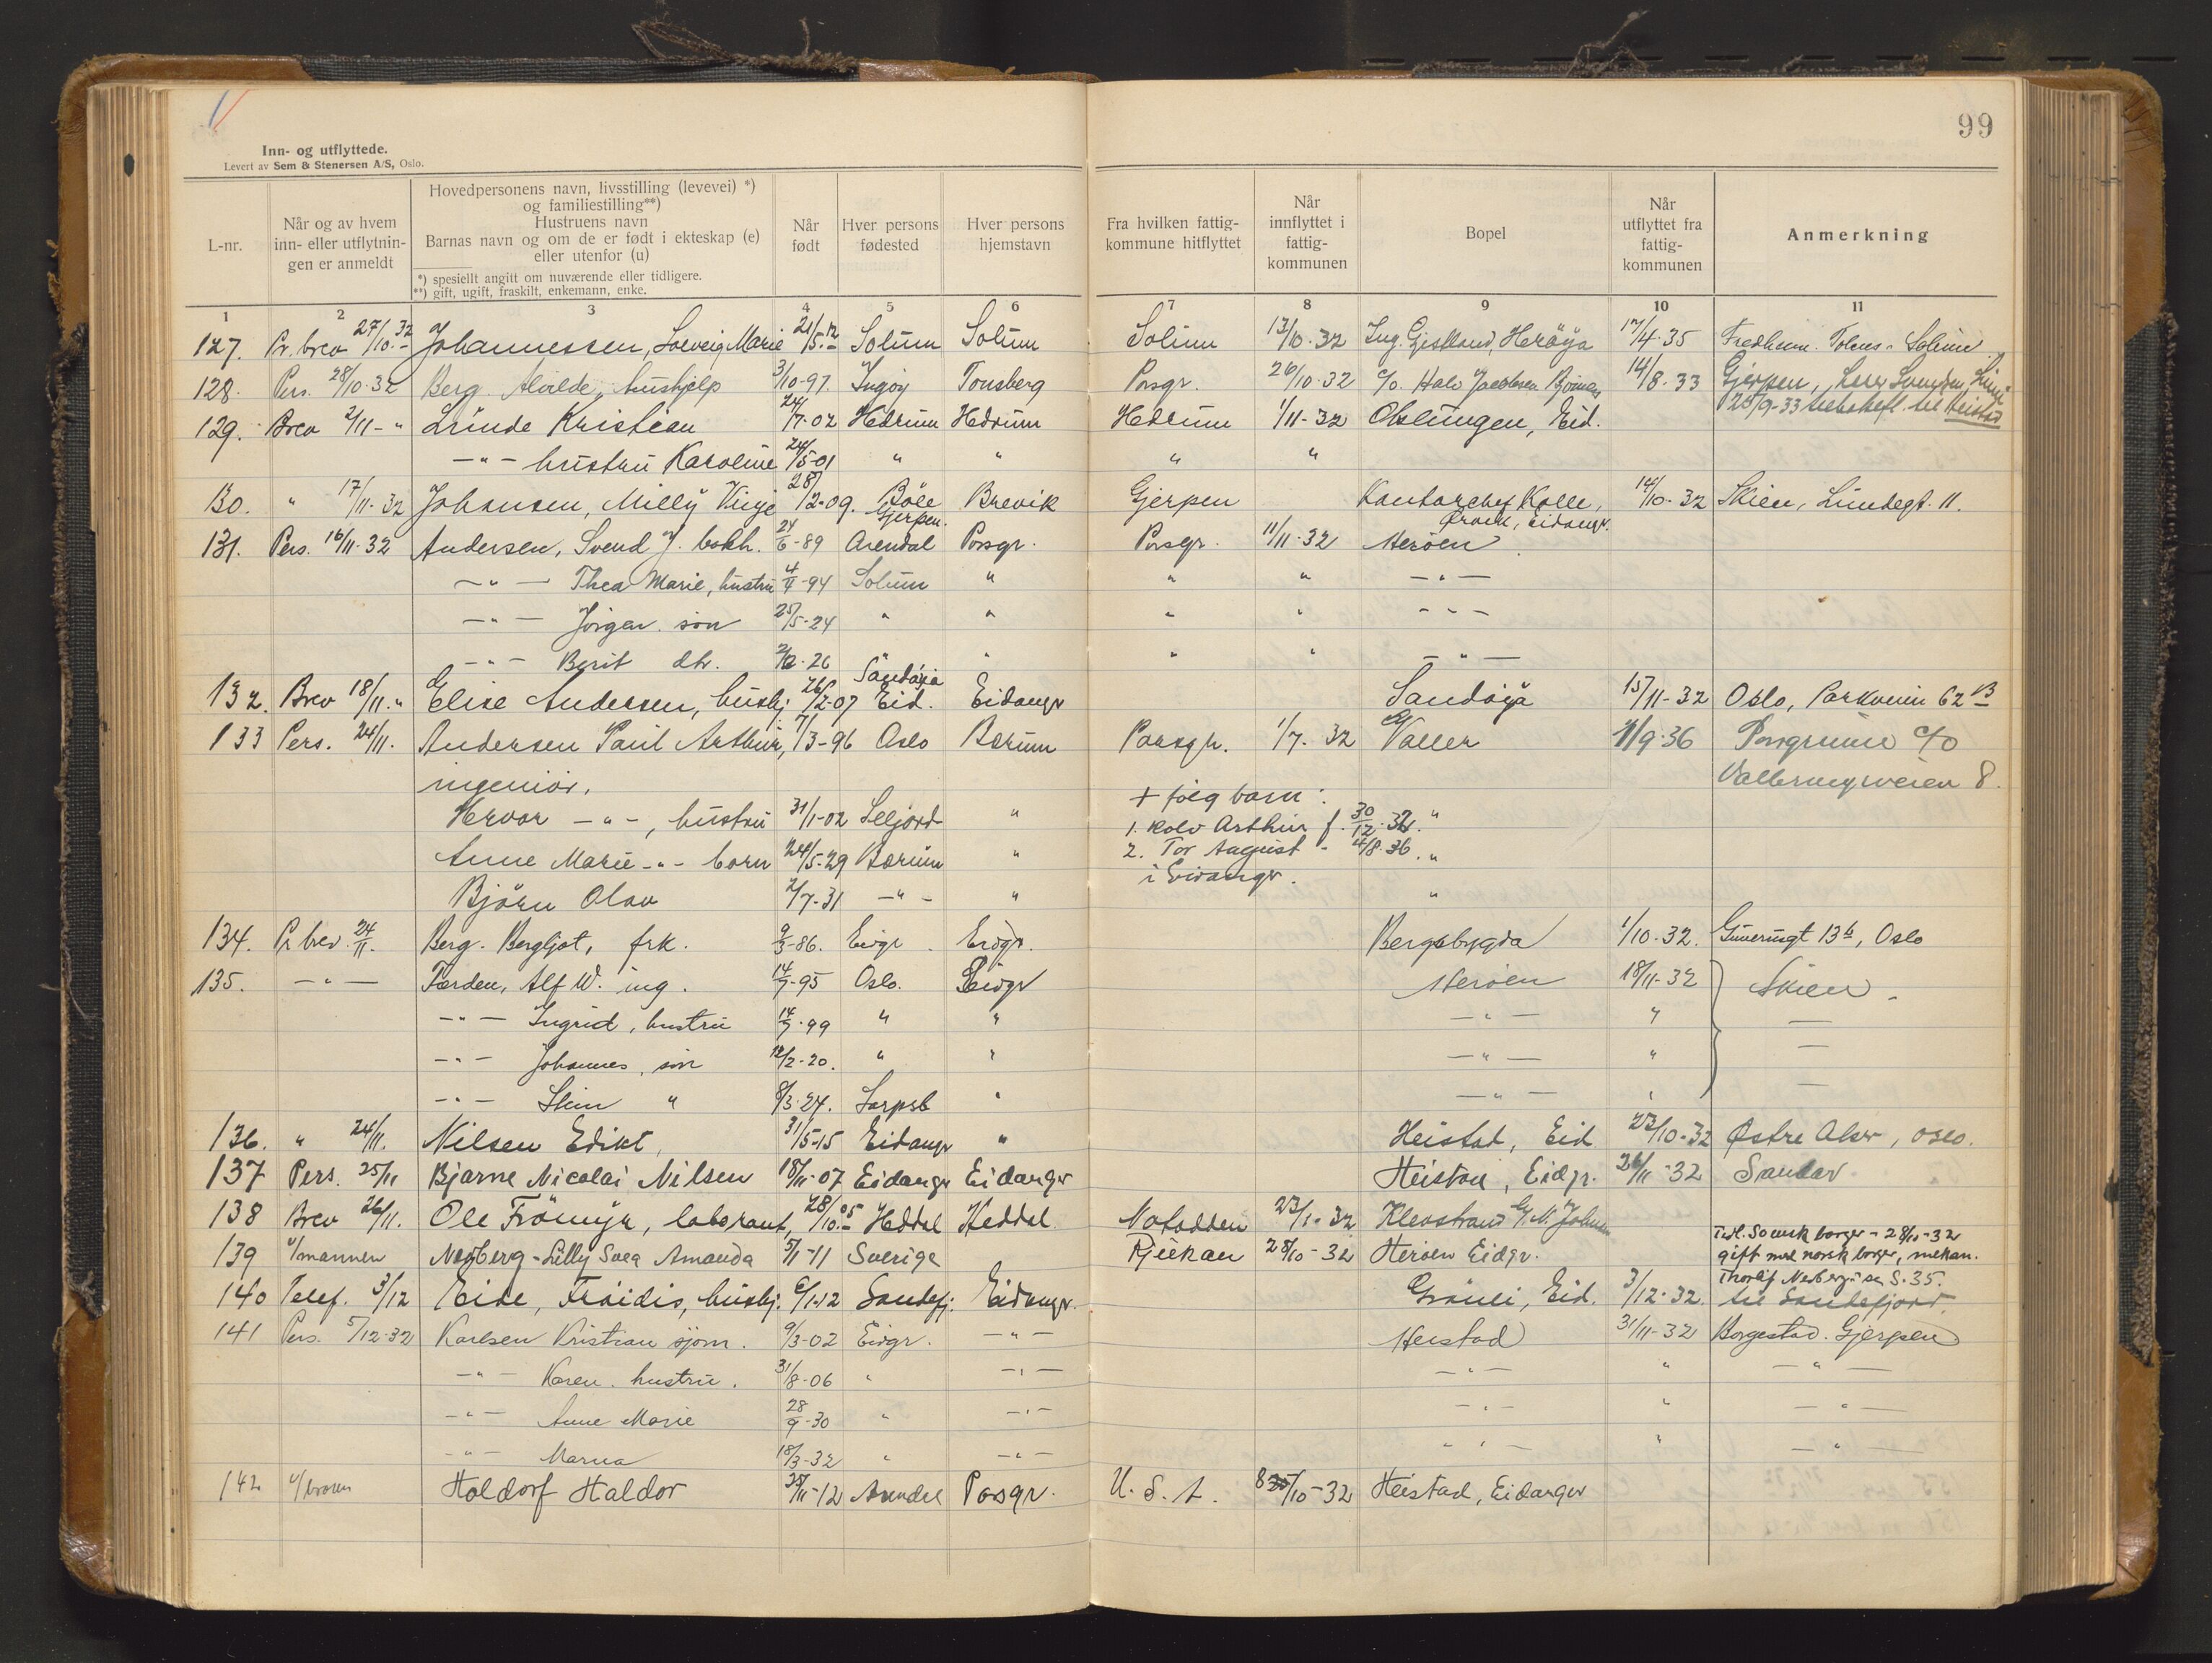 99
Inn- og utflyttede.
Levert av Sem & Stenersen A/S, Oslo.
L-nr.
Når og av hvem
inn- eller utflytnin-
gen er anmeldt
Hovedpersonens navn, livsstilling (levevei) *)
og familiestilling**)
Hustruens navn
Barnas navn og om de er født i ekteskap (e)
eller utenfor (u)
*) spesiellt angitt om nuværende eller tidligere.
**) gift, ugift, fraskilt, enkemann, enke.
Når
født
Hver persons
fødested
Hver persons
hjemstavn
Fra hvilken fattig-
kommune hitflyttet
Når
innflyttet i
fattig-
kommunen
Bopel
Når
utflyttet fra
fattig-
kommunen
Anmerkning
1 2 3 4 5 6 7 8 9 10 11
127. Pr. brev 27/10.32 Johannessen, Solveig Marie 21/5.12 Solum Solum Solum 13/10-32 Ing. Gjestland, Herøya 17/4-35 Solum
128. Pers. 28/10-32 Berg Alvilde, hushjelp 3/10-97 Ingøy Tønsberg Porsgr. 26/10-32 c/o. Halv Jacobsen 14/8-33 Gjerpen,
25/9-33 tilbakefl. til Heistad
129. Brev 2/11-" Lunde Kristian 24/7-02 Hedrum Hedrum Hedrum 1/11-32 Olsungen, Eid.
-"- hustru Karoline 24/5-01 " " " "
130. " 17/11-32 Johansen, Milly Vinje 28/12-09. Böle Gjerpen. Brevik Gjerpen Kontorchef Kolle, Eidangr. 14/10-32 Skien, Lundegt. 11.
131. Pers. 16/11-32 Andersen, Svend J. bokh. 24/6-89 Arendal Porsgr. Porsgr. 11/11-32 Herøen
-"- Thea Marie, hustru 4/4-94 Solum " " " -"-
-"- Jörgen. sön 25/5-24 " " " " -"-
-"- Berit dtr. 2/12-26 " " " -"-
132. Brev 18/11-" Elise Andersen, hushj. 26/2-07 Sandøya Eid. Eidangr Sandøya 15/11-32 Oslo, Parkveien 62 B
133 Pers. 24/11. Andersen Paul Arthur, 7/3-96 Oslo Bærum Porsgr. 1/7-32 Valler 11/9-36 Porsgrunn c/o
ingeniör.
Vallermyrveien 8.
+ følg barn:
Hervor -"-, hustru 31/1-02 Seljord " 1. Rolv Arthur f. 30/12-32. "
Anne Marie -"- barn 24/5-29 Bærum " 2. Tor August - 4/8-36. "
i Eidanger.
Björn Olav 2/7-31 -"- " "
134. Pr brev. 24/11. Berg. Bergljot, frk. 9/3-86. Eidgr. Eidgr. Bergsbygda 1/10-32. 13b, Oslo
135. -"- Færden, Alf W. ing. 14/7-95 Oslo. Eidgr Herøen 18/11-32 Skien.
-"- Ingrid, hustru 14/7-99 " " -"- " —
-"- Johannes, sön 12/2-20. " " -"- " —
-"- Stein " 8/3-24. Sarpsb " -"- " —
136. " 24/11. Nilsen Edikt, 31/5-15 Eidangr " Heistad, Eid 23/10-32 Østre Aker, Oslo.
137 Pers. 25/11 Bjarne Nicolai Nilsen 18/11-07 Eidangr Eidangr Heistad, Eidgr. 26/11-32 Sandar
138 Brev 26/11. Ole Frömyr, laborant, 28/10.05 Heddal Heddal Notodden 23/1-32 Klevstrand
139 v/mannen Nesberg - Lilly Svea Amanda 5/11-11 Sverige Rjukan 28/10-32 Herøen Eidgr. Tidl. Svensk borger - 28/10-32
gift med norsk borger, mekan.
Thorlif Nesberg se S. 35.
140 Telef. 3/12 Eide, Fröidis, hushj. 6/1-12 Sandefj. Eidangr. Gröuli, Eid. 3/12-32. til Sandefjord.
141 Pers. 5/12-32 Karlsen Kristian sjöm. 9/3-02 Eidgr. -"- Heistad 31/11-32 Borgestad. Gjerpen
-"- Karen. hustru. 31/8-06 " -"- -"- " -"-
-"- Anne Marie 28/9-30 " -"- -"- " -"-
-"- Marna 18/3-32 " -"- -"- " -"-
142 v/broren Holdorf Haldor 28/11-12 Arendal Porsgr. U.S.A. 8/10-32 Heistad, Eidanger